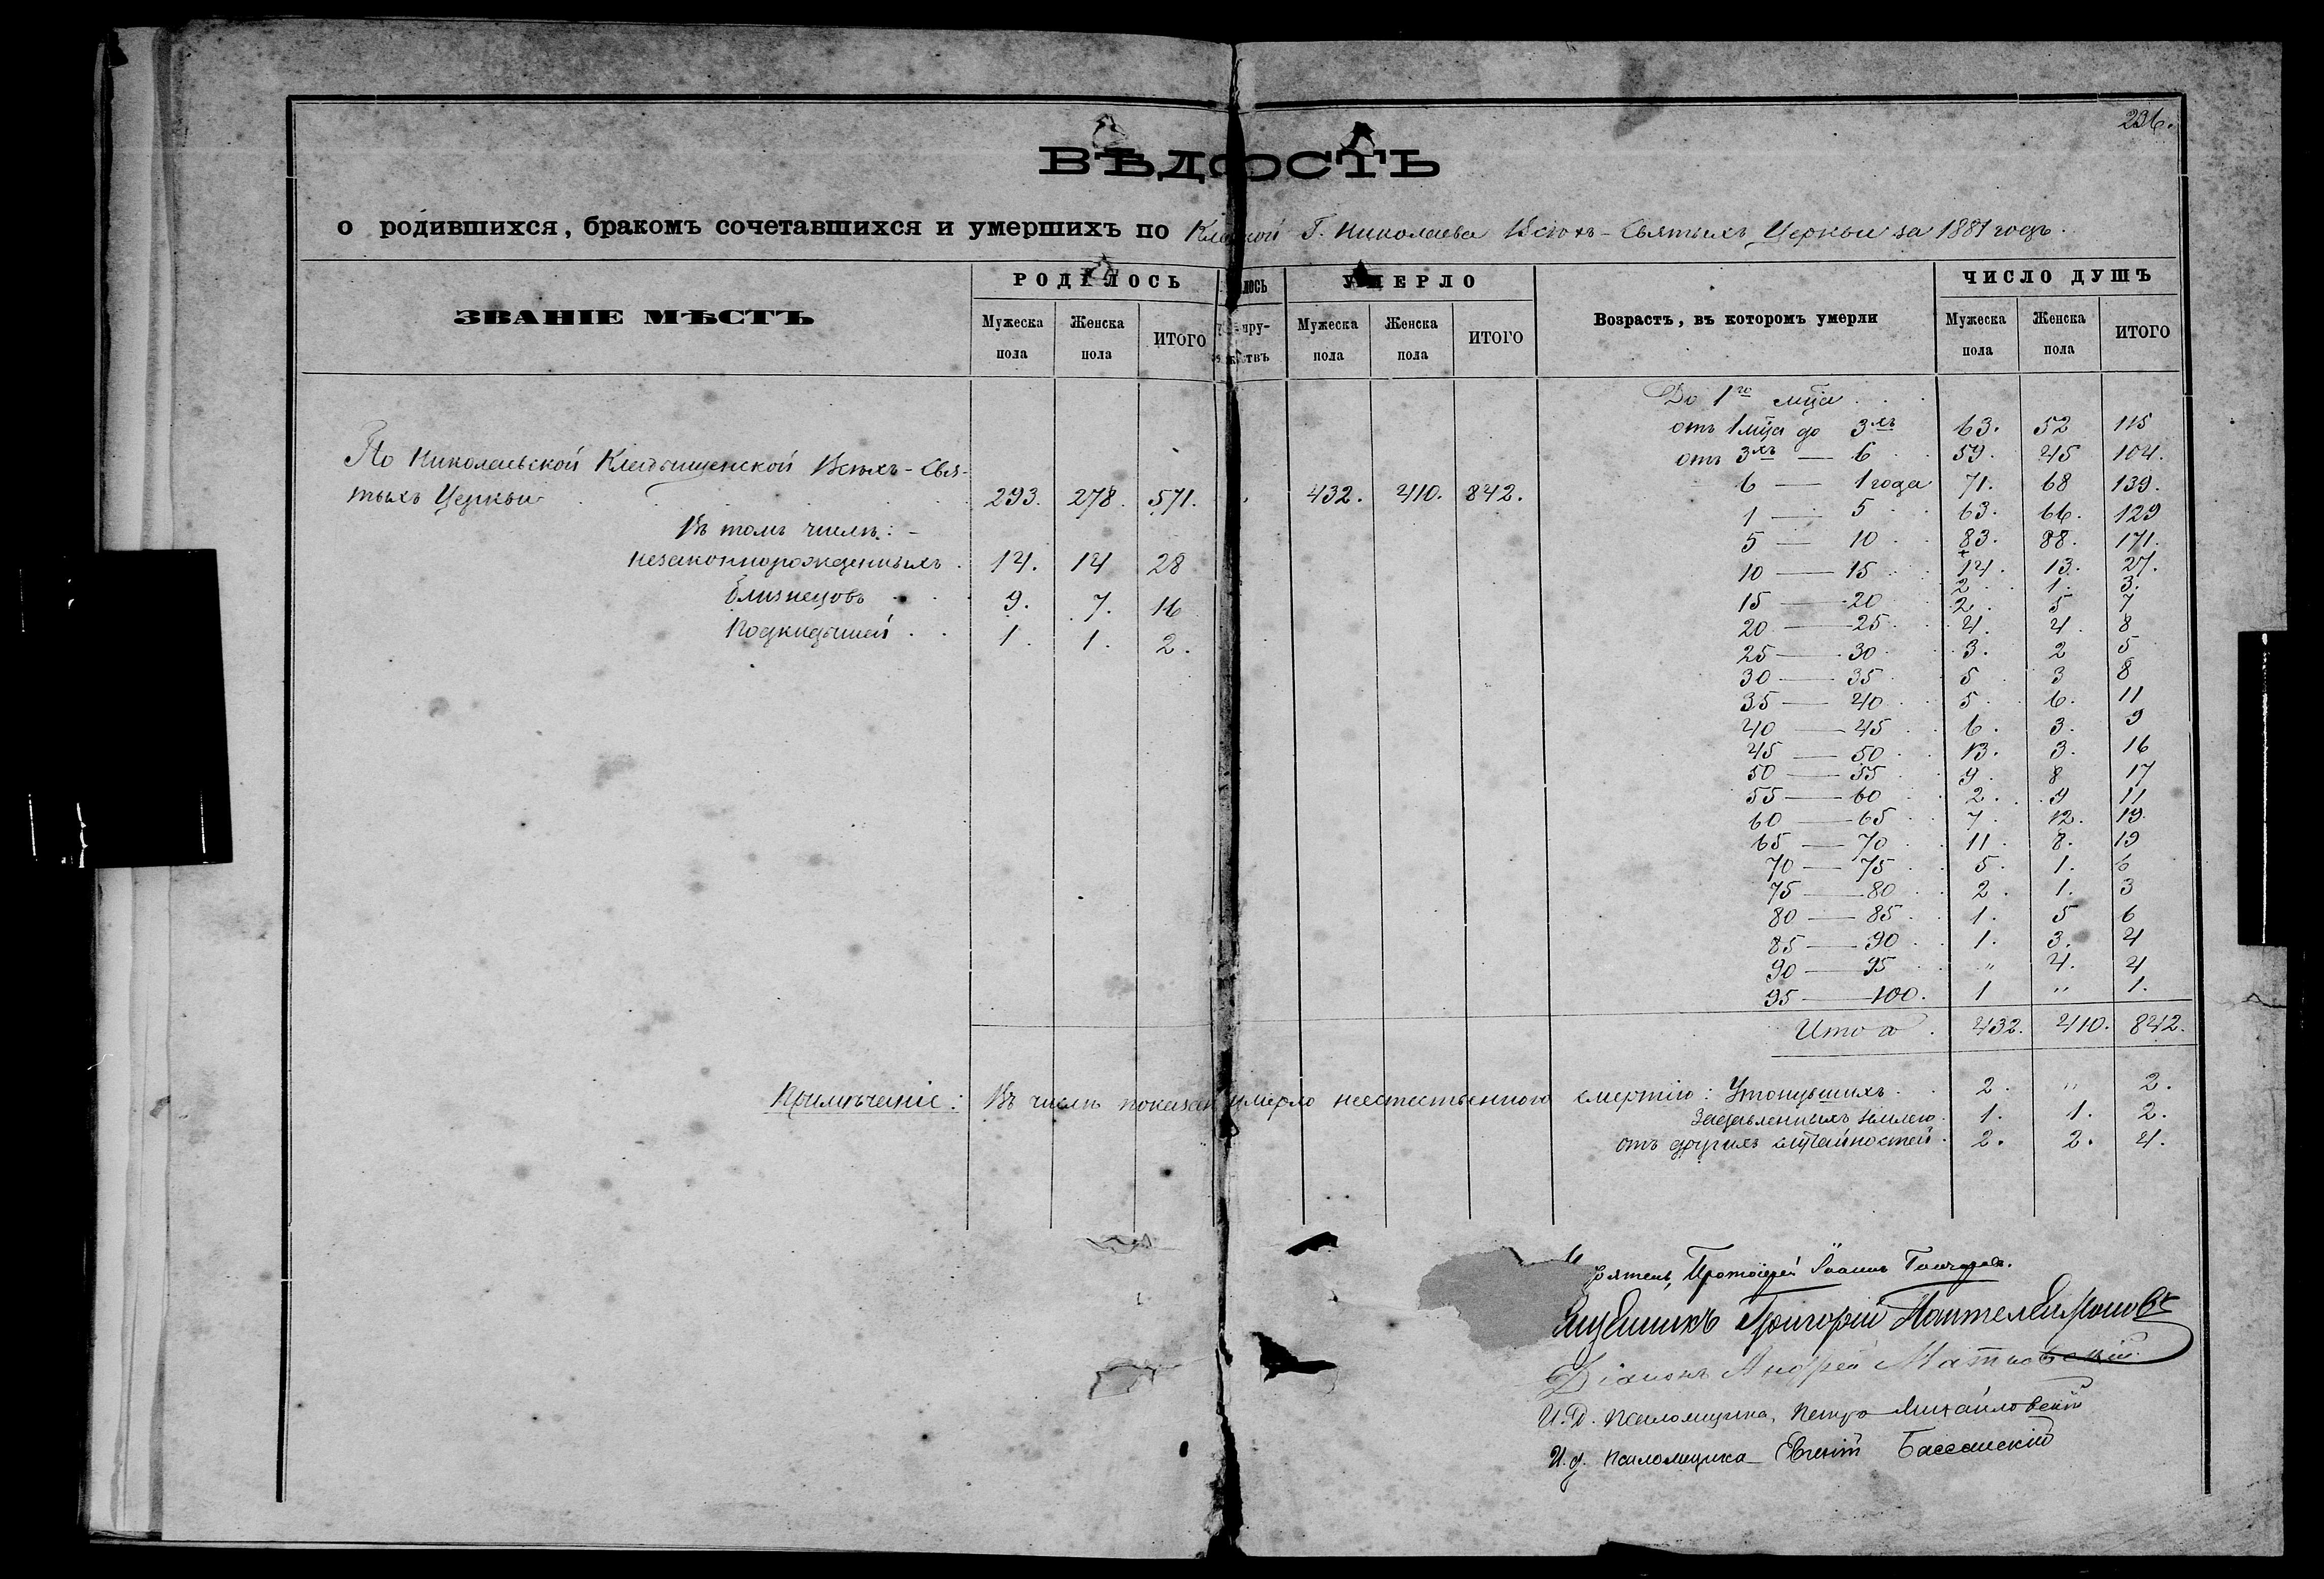 236.
ВѢДОСТЬ
о родившихся, бракомъ сочетавшихся и умершихъ по Г. Николаева Всѣхъ-Святыхъ Церкви за 1881 годъ.
ЗВАНІЕ МѢСТЪ
РОДИЛОСЬ
УМЕРЛО
Возрастъ, въ которомъ умерли
ЧИСЛО ДУШЪ
Мужеска пола Женска пола ИТОГО
Мужеска пола Женска пола ИТОГО
Мужеска пола Женска пола ИТОГО
По Николаевской Кладбищенской Всѣхъ-Свя-
тыхъ Церкви 293. 278. 571. 432. 410. 842.
Въ томъ числѣ:-
незаконнорожденныхъ 14. 14 28
близнецовъ 9. 7. 16
Подкидышей 1. 1. 2.
До 1го мца 63. 52 115
отъ 1 мца до 3хъ 59. 45 104.
отъ 3хъ — 6 71. 68 139.
6 — 1 года 63. 66. 129
1 — 5 83. 88. 171.
5 — 10 14. 13. 27.
10 — 15 2. 1. 3.
15 — 20 2. 5 7
20 — 25 4. 4. 8
25 — 30 3. 2 5
30 — 35 5 3 8
35 — 40 5. 6. 11
40 — 45 6. 3. 9
45 — 50 13. 3. 16
50 — 55 9. 8 17
55 — 60 2. 9 11
60 — 65 7. 12. 19.
65 — 70 11. 8. 19
70 — 75 5. 1. 6
75 — 80 2. 1. 3
80 — 85 1. 5 6
85 — 90 1. 3. 4
90 — 95 " 4. 4
95 — 100. 1 " 1.
Итого 432. 410. 842.
Примѣчаніе: Въ числѣ показан умерло неестественною смертію: Утонувшихъ 2. " 2.
Задавленныхъ землею 1. 1. 2.
отъ другихъ случайностей 2. 2. 4.
Протоіерей Іоаннъ
Григорій Пантелеимоновъ
Діаконъ Андрей
И.Д. псаломщика, Петръ Михайловскій
И.д. псаломщика Евгеній Бассанскій